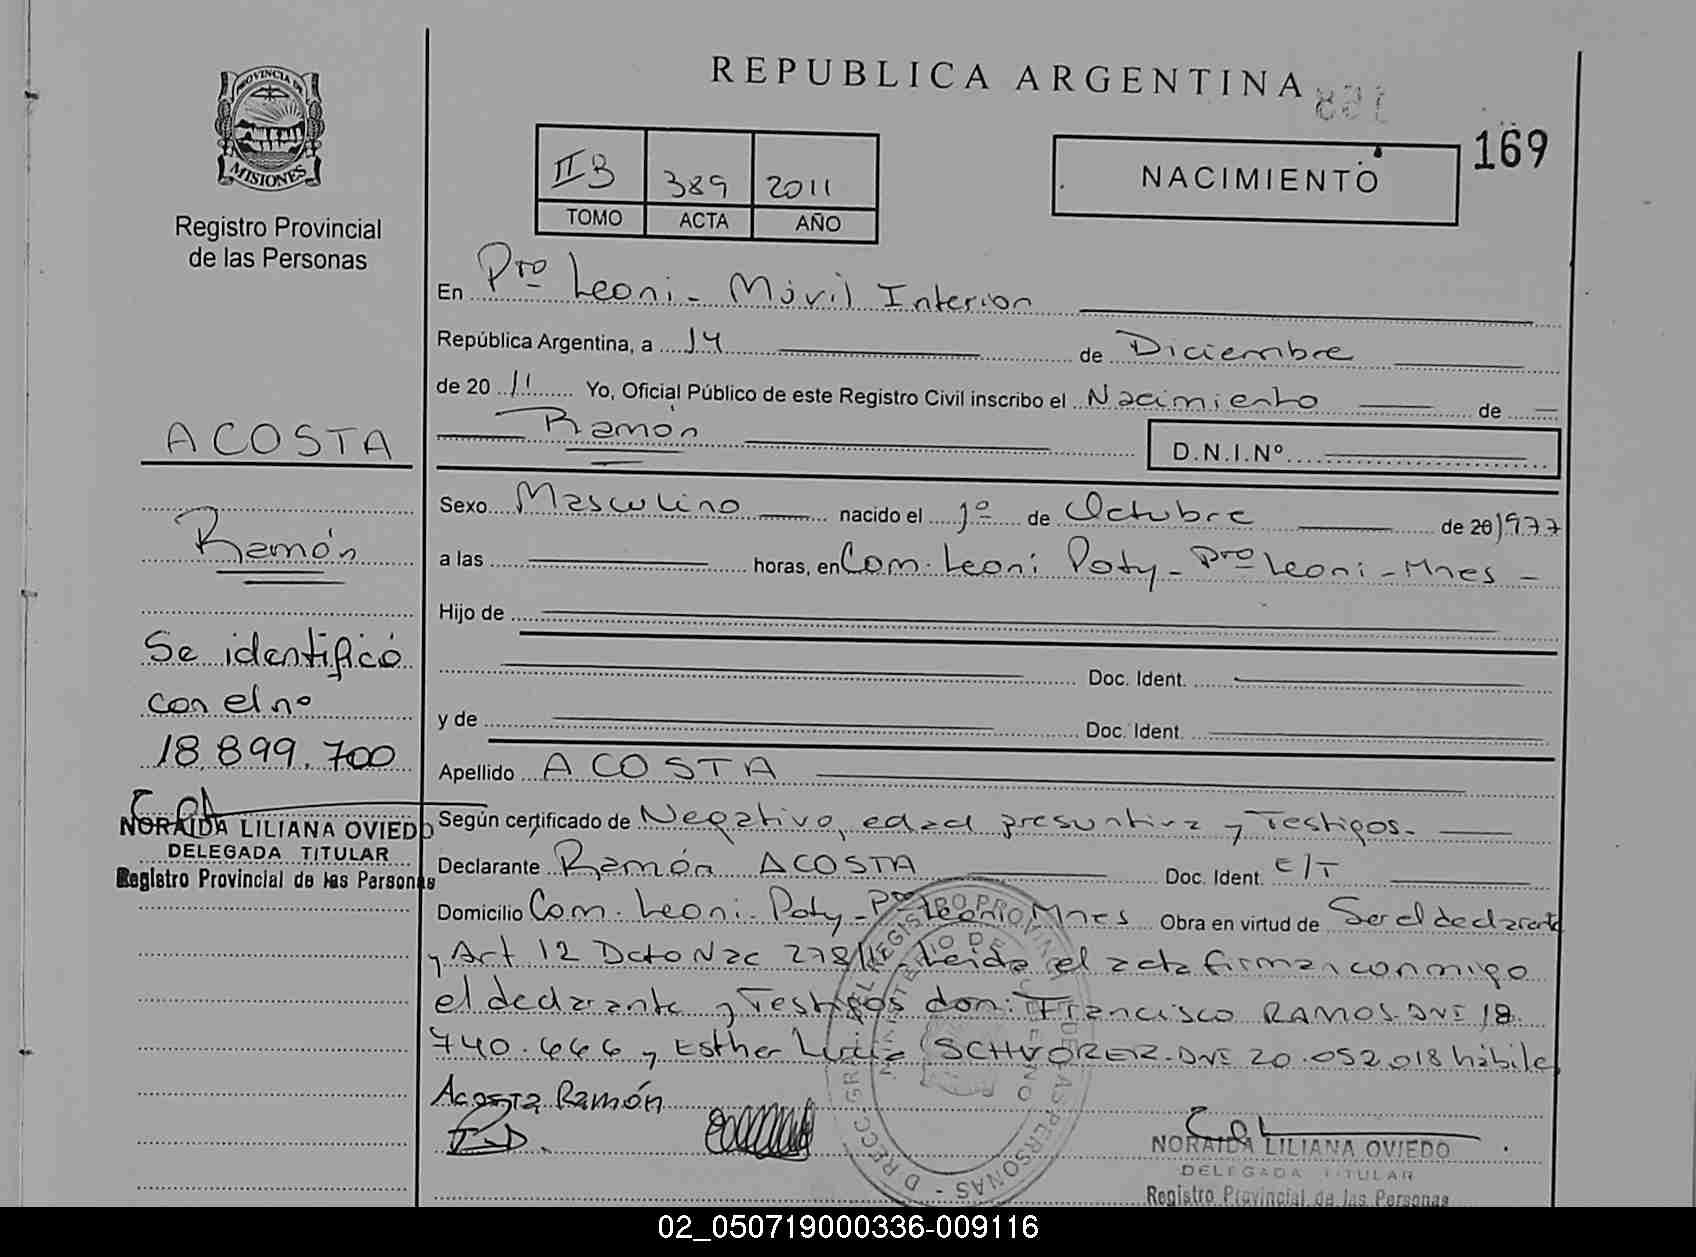 REPUBLICA ARGENTINA
169
PROVINCIA DE
MISIONES
Registro Provincial
de las Personas
II B 389 2011
TOMO ACTA AÑO
NACIMIENTO
En Pto Leoni - Móvil Interior
República Argentina, a 14 de Diciembre
de 20 11 Yo, Oficial Público de este Registro Civil inscribo el Nacimiento de
Ramón D.N.I.Nº
Sexo Masculino nacido el 1º de Octubre de 20 1977
a las horas, en Com. Leoni Poty - Pto Leoni - Mnes -
Hijo de
Doc. Ident.
y de Doc. Ident.
Apellido ACOSTA
Según certificado de Negativo, edad presuntiva y Testigos.
Declarante Ramón ACOSTA Doc. Ident. E/T
Domicilio Com. Leoni Poty - Pto Leoni Mnes Obra en virtud de Ser el declarante
y Art 12 Dcto Nac 278/11. Leida el acta firman conmigo
el declarante y Testigos don: Francisco RAMOS. DNI 18.
740.666 y Esther SCHVORER. DNI 20.052.018 hábiles
Acosta Ramón
NORAIDA LILIANA OVIEDO
DELEGADA TITULAR
Registro Provincial de las Personas
ACOSTA
Ramón
Se identificó
con el nº
18.899.700
NORAIDA LILIANA OVIEDO
DELEGADA TITULAR
Registro Provincial de las Personas
02_050719000336-009116